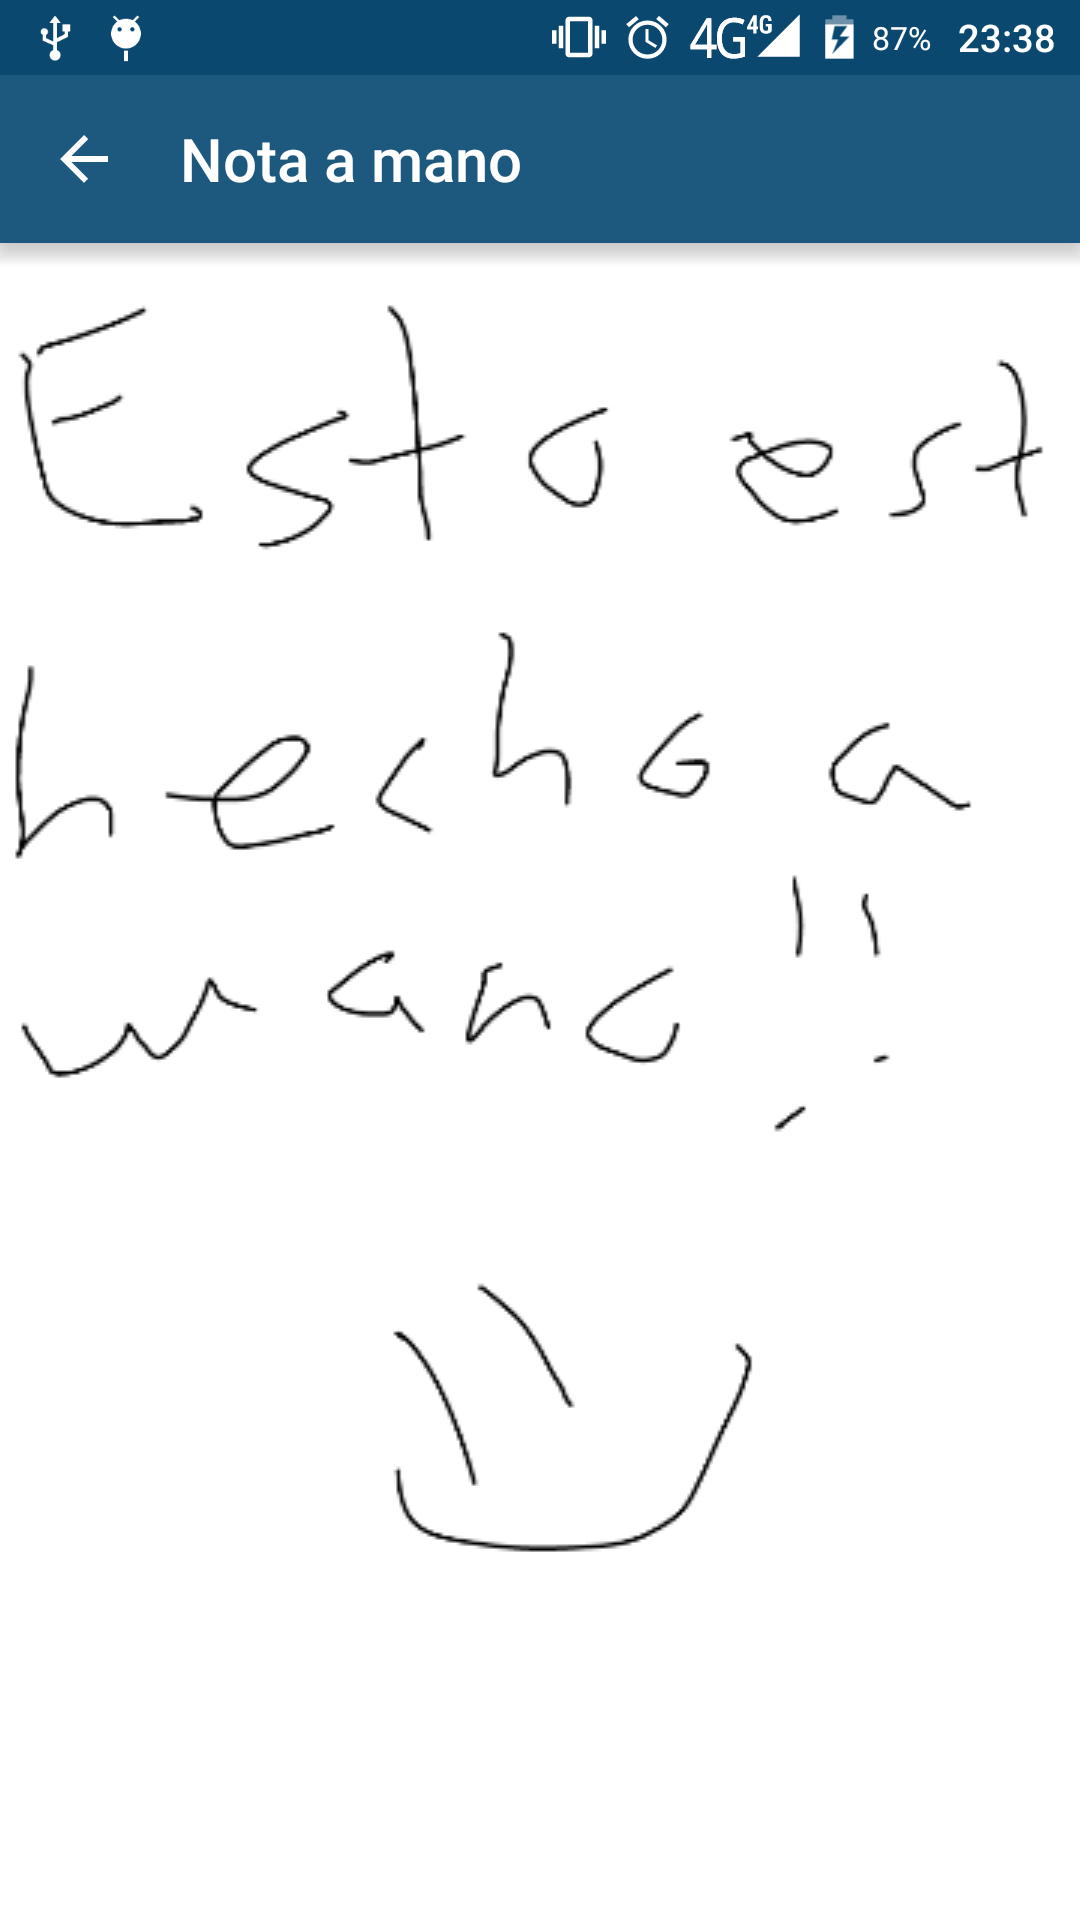 4G 4G 87% 23:38
Nota a mano
Esto est
hecho a
mano!!